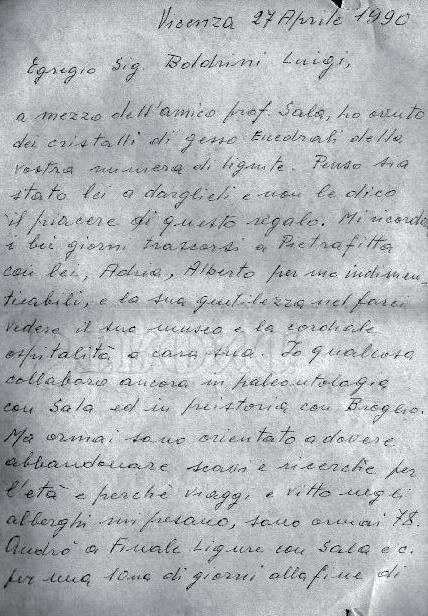 Vicenza 27 Aprile 1990
Egregio Sig. Boldrini Luigi,
a mezzo dell'amico prof. Sala, ho avuto
dei cristalli di gesso Euedrali della
vostra miniera di lignite. Penso sia
stato lei a darglieli e non le dico
il piacere di questo regalo. Mi ricordo
i bei giorni trascorsi a Pietrafitta
con lei, Adrea, Alberto per me indimen-
ticabili, e la sua gentilezza nel farci
vedere il suo museo e la cordiale
ospitalità a casa sua. Io qualcosa
collaboro ancora in paleontologia
con Sala ed in preistoria con Broglio.
Ma ormai sono orientato a dovere
abbandonare scavi e ricerche per
l'età e perchè viaggi e vitto negli
alberghi mi pesano, sono ormai 78.
Andrò a Finale Ligure con Sala e c.
per una 10na di giorni alla fine di